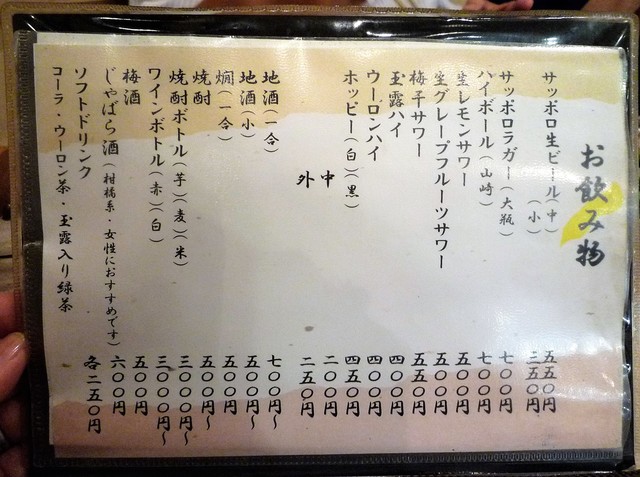 お飲み物
サッポロ生ビール(中) 五五〇円
(小) 三五〇円
サッポロラガー(大瓶) 七〇〇円
ハイボール(山崎) 七〇〇円
生レモンサワー 五〇〇円
生グレープフルーツサワー 五〇〇円
梅干サワー 五五〇円
玉露ハイ 四〇〇円
ウーロンハイ 四〇〇円
ホッピー(白)(黒) 四五〇円
中 二〇〇円
外 二五〇円
地酒(一合) 七〇〇円〜
地酒(小) 五〇〇円〜
燗(一合) 五〇〇円
焼酎 五〇〇円〜
焼酎ボトル(芋)(麦)(米) 三〇〇〇円〜
ワインボトル(赤)(白) 三〇〇〇円〜
梅酒 五〇〇円
じゃばら酒(柑橘系・女性におすすめです) 六〇〇円
ソフトドリンク 各二五〇円
コーラ・ウーロン茶・玉露入り緑茶